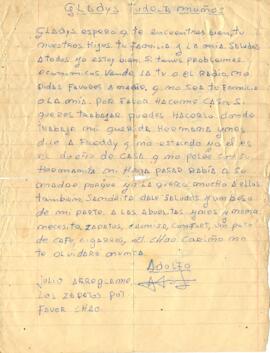 GLADYS Tudela Muñoz
GLADYS espero q te encuentres bien, tu
nuestros Hijos, tu familia y LA mia. Saludos
A todos yo estoy bien. Si tenes problemas
economicos Vende la TV o el Radio, no
Pidas Favores A nadie, q no sea tu Familia
o LA mia. Por favor HACeme CASO. Si
queres trabajar puedes HACerlo donde
trabaja mi querida Hermana y nos
dice A Freddy q no estando yo el es
el dueño de CASA y no pelee con su
Hermanita ni Haga pasar RABIA A su
madre porque yo LA quiero mucho A ellos
tambien. Sandrita dale Saludos y un beso
de mi parte. A los Abuelitos y
necesito Zapatos, camisa, un poco
de cafe, cigarros, Chao Cariño no
te olvidare nunca.
Adolfo
Julio Arreglame
Los Zapatos por
Favor Chao.